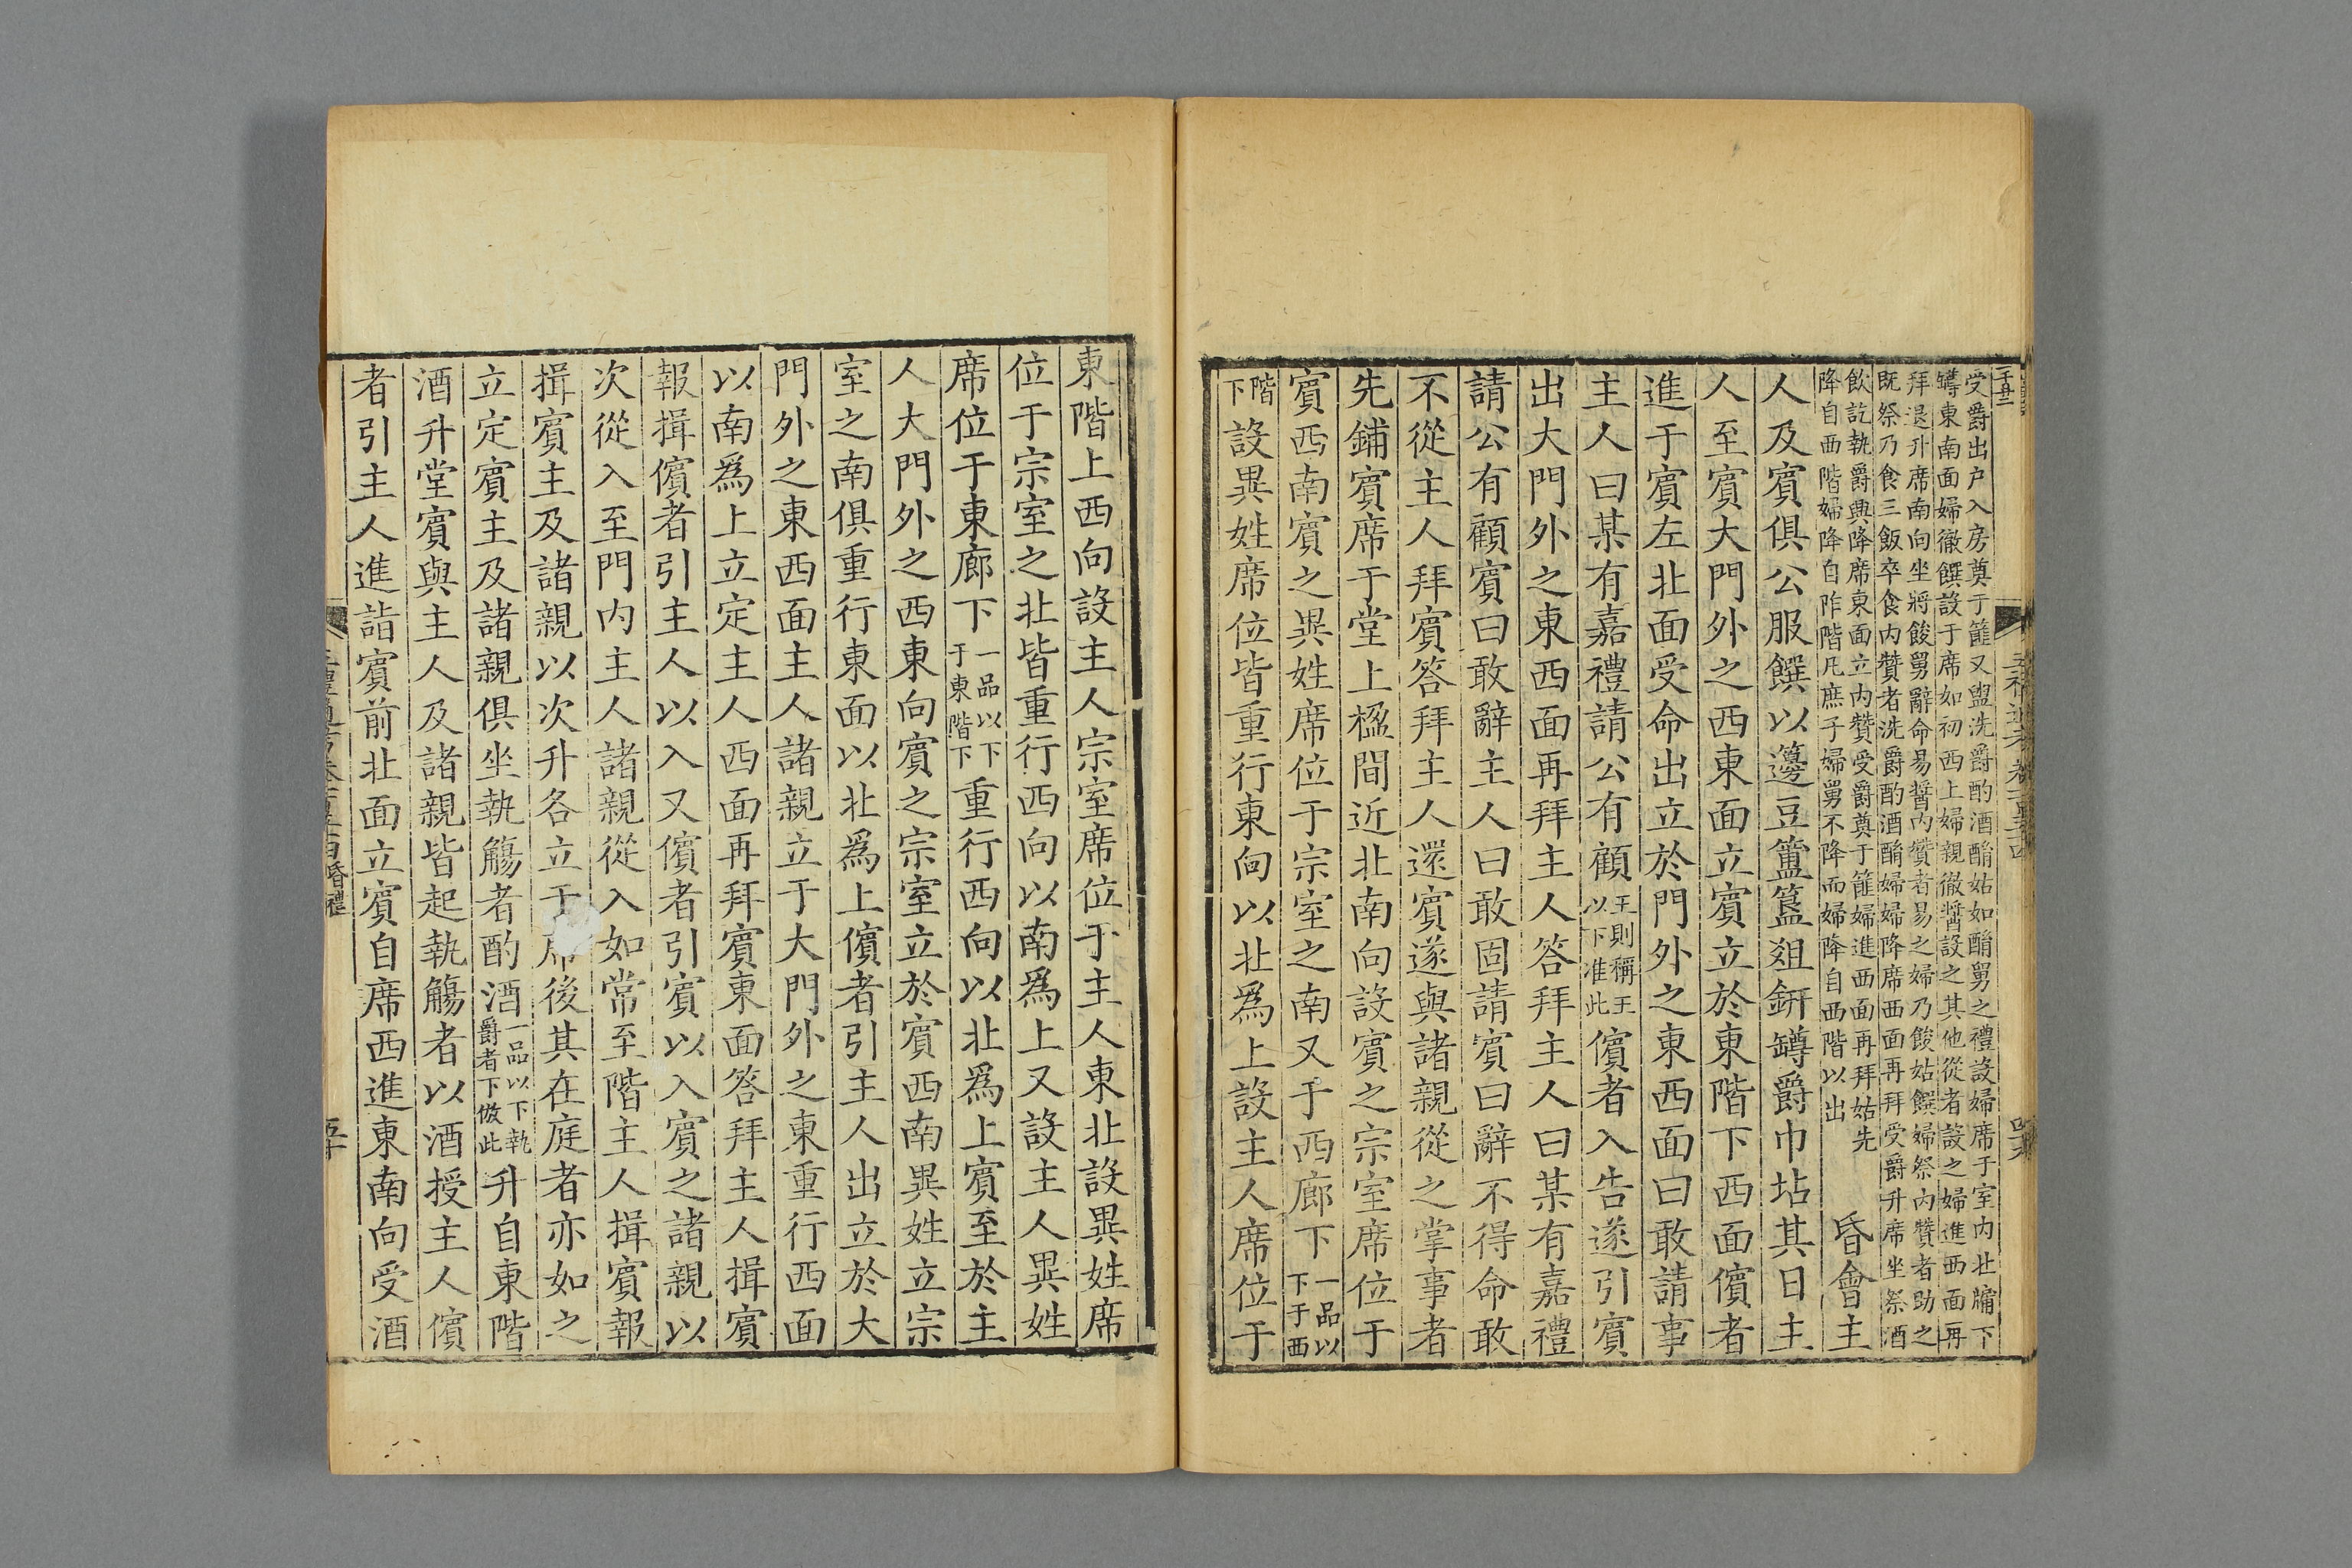 受爵出户入房奠于篚又盥洗爵酌酒酳姑如酳舅之禮設婦席于室内北牖下
罇東南面婦徹饌設于席如初西上婦親徹醬設之其他從者設之婦進西面再
拜退升席南向坐將餕舅辭命易醬内贊者易之婦乃餕姑饌婦祭内贊者助之
既祭乃食三飯卒食内贊者洗爵酌酒酳婦婦降席西面再拜受爵升席坐祭酒
飲訖執爵興降席東面立内贊受爵奠于篚婦進西面再拜姑先
降自西階婦降自阼階凡庶子婦舅不降而婦降自西階以出
昏會主
人及賓俱公服饌以籩豆簠簋俎鉶罇爵巾坫其日主
人至賓大門外之西東面立賓立於東階下西面儐者
進于賓左北面受命出立於門外之東西面曰敢請事
主人曰某有嘉禮請公有顧王則稱王以下准此儐者入告遂引賓
出大門外之東西面再拜主人答拜主人曰某有嘉禮
請公有顧賓曰敢辭主人曰敢固請賓曰辭不得命敢
不從主人拜賓答拜主人還賓遂與諸親從之掌事者
先鋪賓席于堂上楹間近北南向設賓之宗室席位于
賓西南賓之異姓席位于宗室之南又于西廊下一品以下于西
階下設異姓席位皆重行東向以北爲上設主人席位于
東階上西向設主人宗室席位于主人東北設異姓席
位于宗室之北皆重行西向以南爲上又設主人異姓
席位于東廊下一品以下于東階下重行西向以北爲上賓至於主
人大門外之西東向賓之宗室立於賓西南異姓立宗
室之南俱重行東面以北爲上儐者引主人出立於大
門外之東西面主人諸親立于大門外之東重行西面
以南爲上立定主人西面再拜賓東面答拜主人揖賓
報揖儐者引主人以入又儐者引賓以入賓之諸親以
次從入至門内主人諸親從入如常至階主人揖賓報
揖賓主及諸親以次升各立于席後其在庭者亦如之
立定賓主及諸親俱坐執觴者酌酒一品以下執爵者下倣此升自東階
酒升堂賓與主人及諸親皆起執觴者以酒授主人儐
者引主人進詣賓前北面立賓自席西進東南向受酒